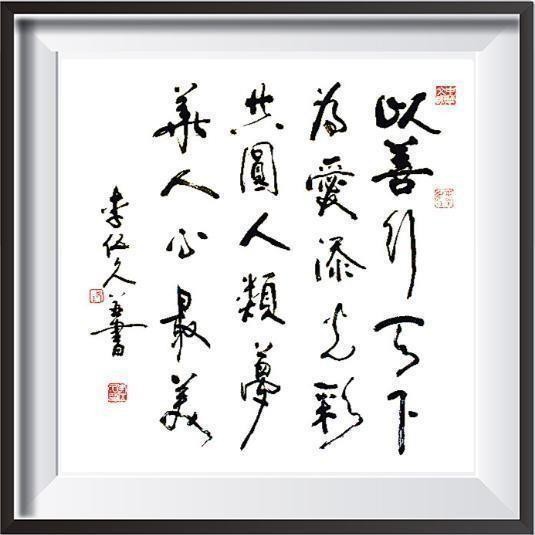 以善行天下
為愛添光彩
共圓人類夢
華人心最美
李伍久並書